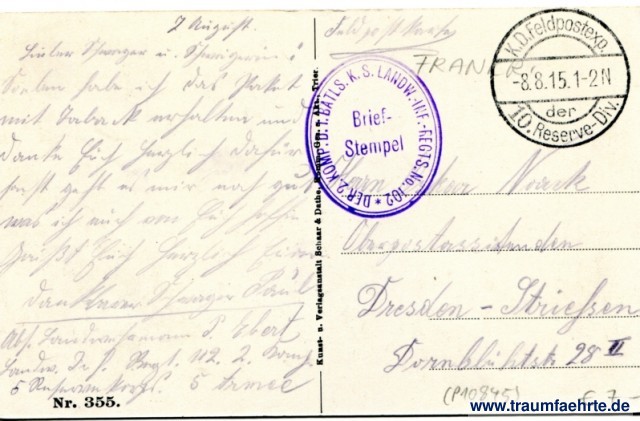 7 August.
Lieber Schwager u. Schwägerin!
habe ich das Paket
mit Taback erhalten und
danke Euch herzlich dafür
geht es mir noch gut
was ich auch von Euch hoffe
Grüßt Euch herzlich Euer
dankbarer Schwager Paul
Abs. Landwehrmann P. Ebert
Landw. Inf. Regt. 102. 2. Komp.
5 Armee
Nr. 355.
Kunst- u. Verlagsanstalt Schaar & Dathe, Komm.-Ges. a. Akt., Trier.
Feldpostkarte
FRANKR
K.D. Feldpostexp.
-8.8.15.1-2N
der
10. Reserve-Div.
DER 2. KOMP. D. 1. BATLS. K. S. LANDW.-INF.-REGTS. No. 102 *
Brief-
Stempel
Noack
Oberpostassistenten
Dresden - Striessen
Dornblüthstr 28 II
(P10845)
€ 7,-
www.traumfaehrte.de